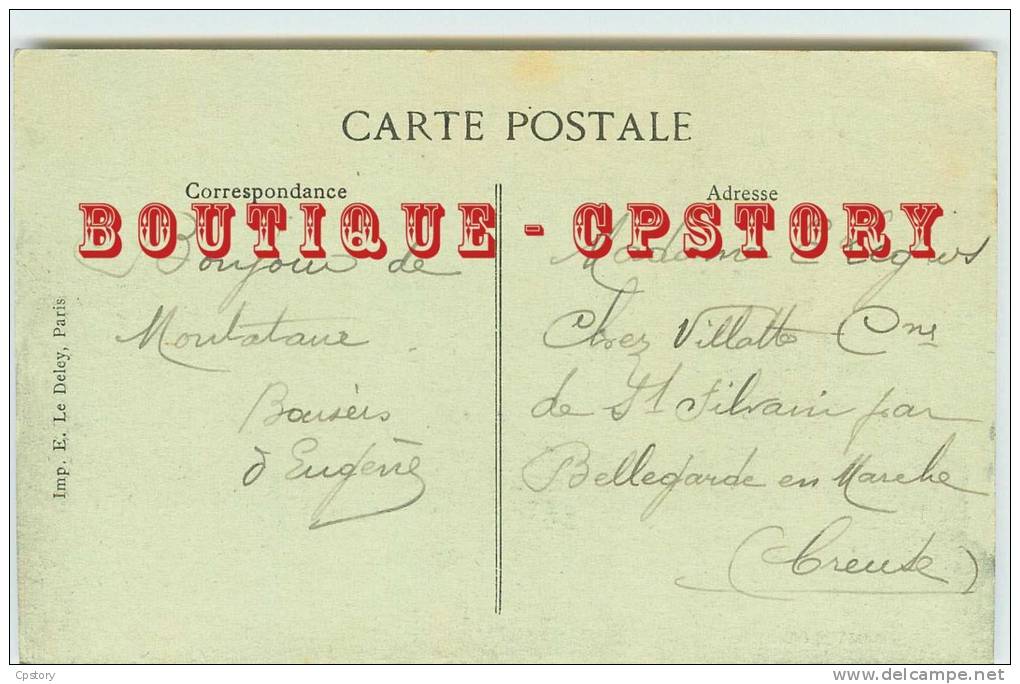 CARTE POSTALE
Correspondance
Adresse
BOUTIQUE - CPSTORY
Bonjour de
Montataue
Baisers
d'Eugène
Imp. E. Le Deley, Paris
Madame
Chez Villatte Cne
de St Silvain par
Bellegarde en Marche
(Creuse)
Cpstory
delcampe.net